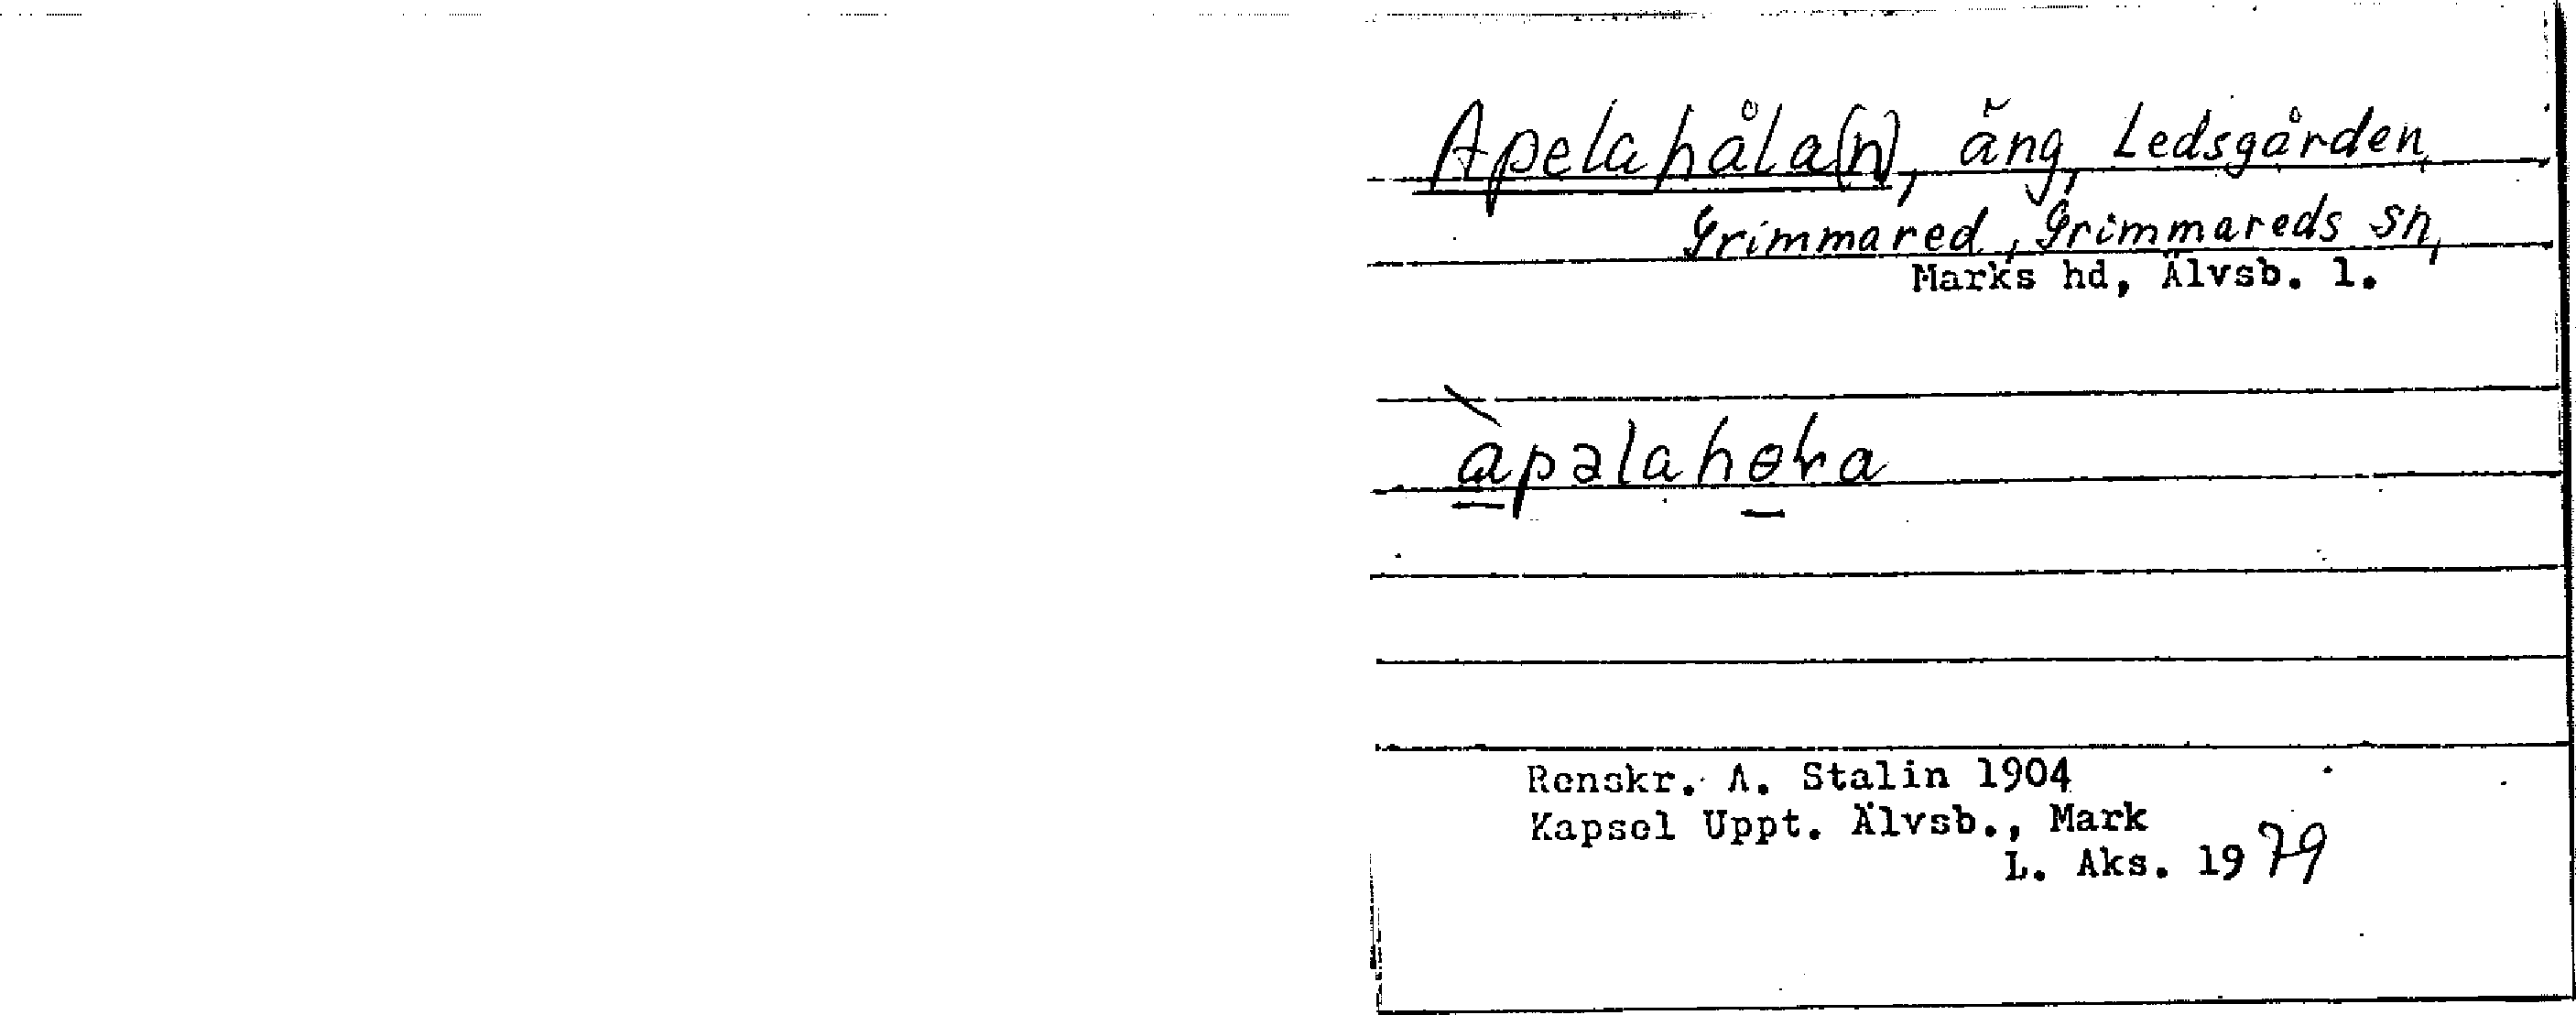 Apelahåla(n), äng, Ledsgården,
Grimmared, Grimmareds sn,
Marks hd, Älvsb. l.
Renskr. A. Stalin 1904
Kapsel Uppt. Älvsb., Mark
L. Aks. 1979